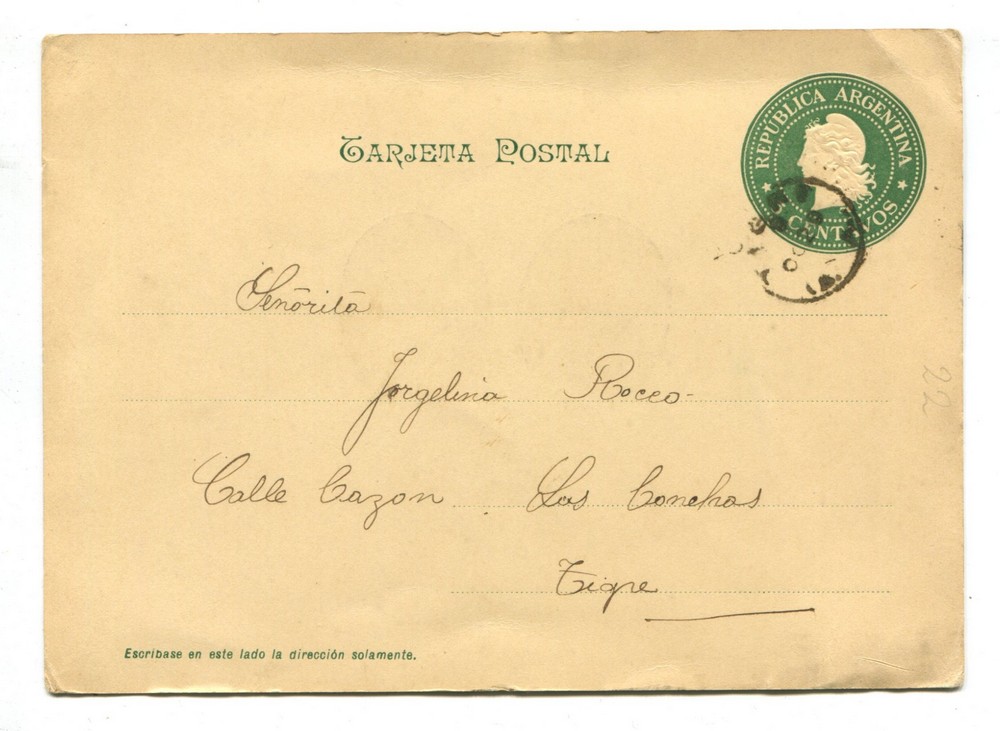 REPUBLICA ARGENTINA
CENTAVOS
TARJETA POSTAL
Señorita
Jorgelina Rocco-
Calle Cazon Las Conchas
Tigre
22
Escríbase en este lado la dirección solamente.